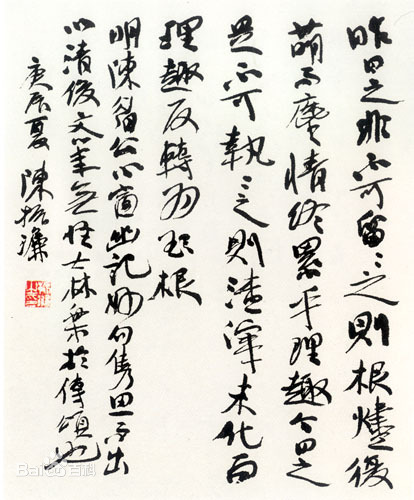 昨日之非不可留〻之則根燼復
萌而塵情終累乎理趣今日之
是不可執〻之則渣滓未化而
理趣反轉為欲根
明陳眉公小窗幽記妙句雋思而出
以清俊文筆無怪士林樂於傳頌也
庚辰夏 陳振濂
Baidu百科